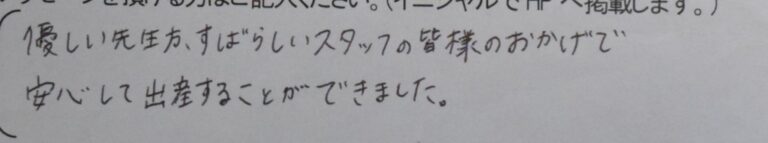 を頂ける方はご記入ください。(イニシャルでHPへ掲載します。)
優しい先生方、すばらしいスタッフの皆様のおかげで
安心して出産することができました。